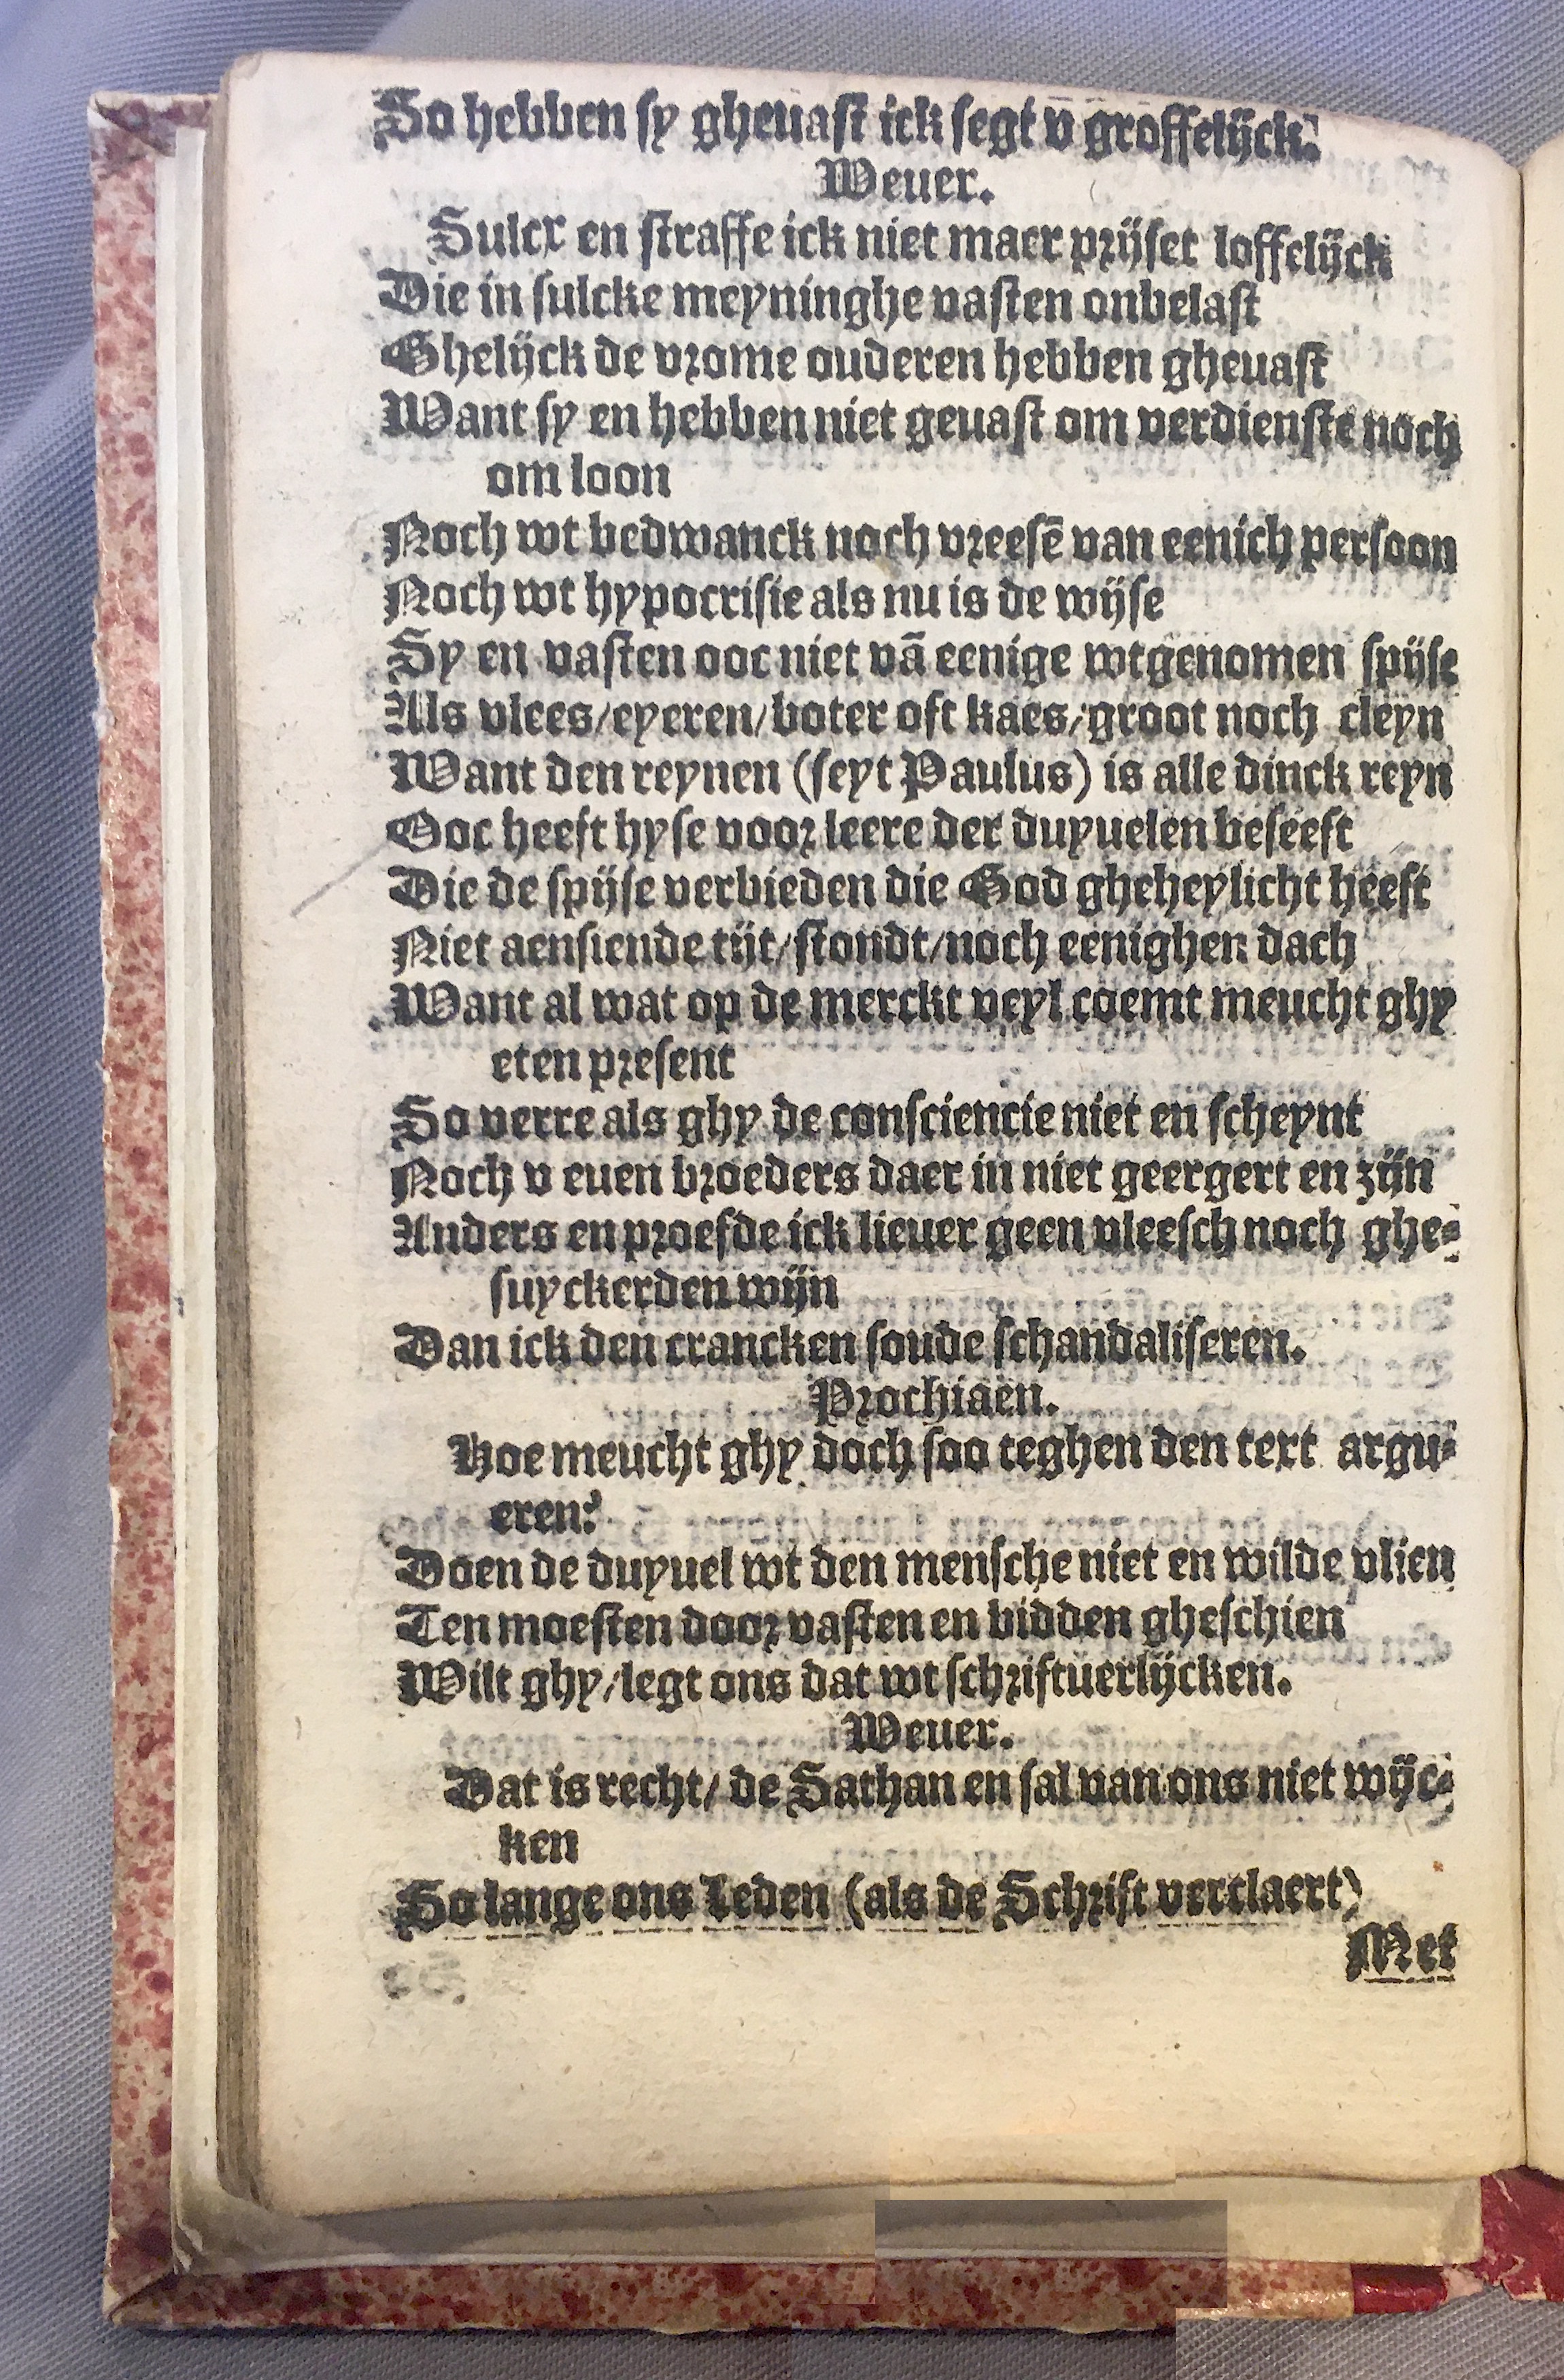 So hebben sy gheuast ick segt v groffelijck.
Weuer.
Sulcx en straffe ick niet maer prijset loffelijck
Die in sulcke meyninghe vasten onbelast
Ghelijck de vrome ouderen hebben gheuast
Want sy en hebben niet geuast om verdienste noch
om loon
Noch wt bedwanck noch vreesē van eenich persoon
Noch wt hypocrisie als nu is de wijse
Sy en vasten ooc niet vā eenige wtgenomen spijse
Als vlees/eyeren/boter oft kaes/groot noch cleyn
Want den reynen (seyt Paulus) is alle dinck reyn
Ooc heeft hyse voor leere der duyuelen beseeft
Die de spijse verbieden die God gheheylicht heeft
Niet aensiende tijt/stondt/noch eenighen dach
Want al wat op de merckt veyl coemt meucht ghy
eten present
So verre als ghy de consciencie niet en scheynt
Noch v euen broeders daer in niet geergert en zijn
Anders en proefde ick lieuer geen vleesch noch ghe⸗
suyckerden wijn
Dan ick den crancken soude schandaliseren.
Prochiaen.
Hoe meucht ghy doch soo teghen den text argu⸗
eren?
Doen de duyuel wt den mensche niet en wilde vlien
Ten moesten door vasten en bidden gheschien
Wilt ghy/legt ons dat wt schriftuerlijcken.
Weuer.
Dat is recht/ de Sathan en sal van ons niet wijc⸗
ken
So lange ons Leden (als de Schrift verclaert)
Met